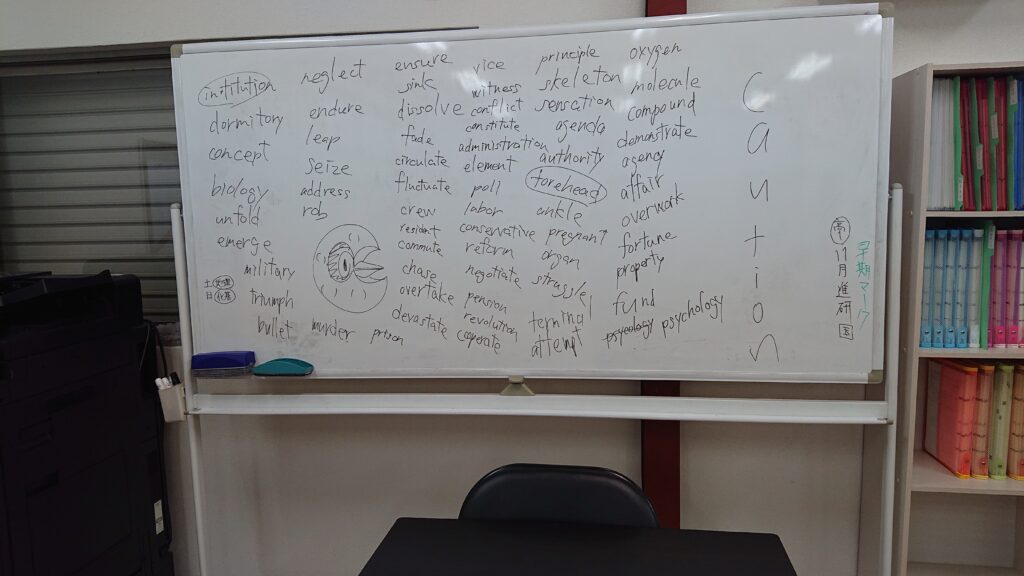 institution
dormitory
concept
biology
unfold
emerge
military
triumph
bullet
neglect
endure
leap
seize
address
rob
murder
prison
ensure
sink
dissolve
fade
circulate
fluctuate
crew
resident
commute
chase
overtake
devastate
vice
witness
conflict
constitute
administration
element
poll
labor
conservative
reform
negotiate
pension
revolution
coperate
principle
skeleton
sensation
agenda
authority
forehead
ankle
pregnant
organ
struggle
attempt
oxygen
molecule
compound
demonstrate
agency
affair
overwork
fortune
property
fund
psycology psychology
Caution
11月進研
早期マーク
土
日